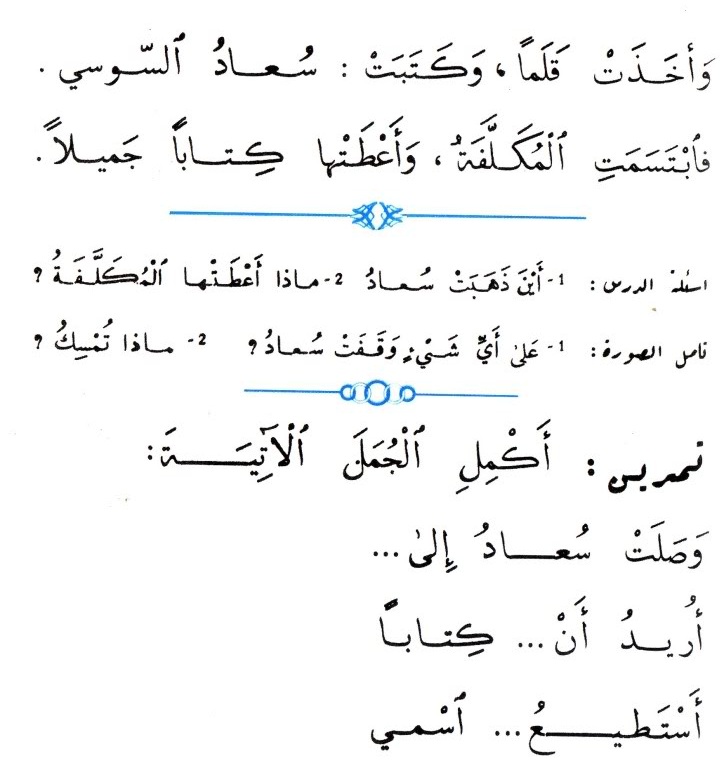 وَأَخَذَتْ قَلَماً، وَكَتَبَتْ : سُعـادُ ٱلسّـوسي .
فٱبْتَسَمَتِ ٱلْمُكَـلَّفَةُ، وَأَعْطَتْها كِتـاباً جَميـلاً.
اسئلة الدرس : 1- أَيْنَ ذَهَبَتْ سُعـادُ 2- ماذا أَعْطَتْـها ٱلْمُكَلَّـفَـةُ ؟
تامل الصورة : 1- عَلىٰ أَيِّ شَيْءٍ وَقَـفَتْ سُعادُ ؟ 2- مـاذا تُمْسِكُ ؟
تمرين : أَكْمِلِ ٱلْجُمَلَ ٱلْآتِيَـةَ :
وَصَلَتْ سُعـادُ إِلىٰ ...
أُريـدُ أَنْ ... كِتـابـاً
أَسْتَطيـعُ ... ٱسْمـي